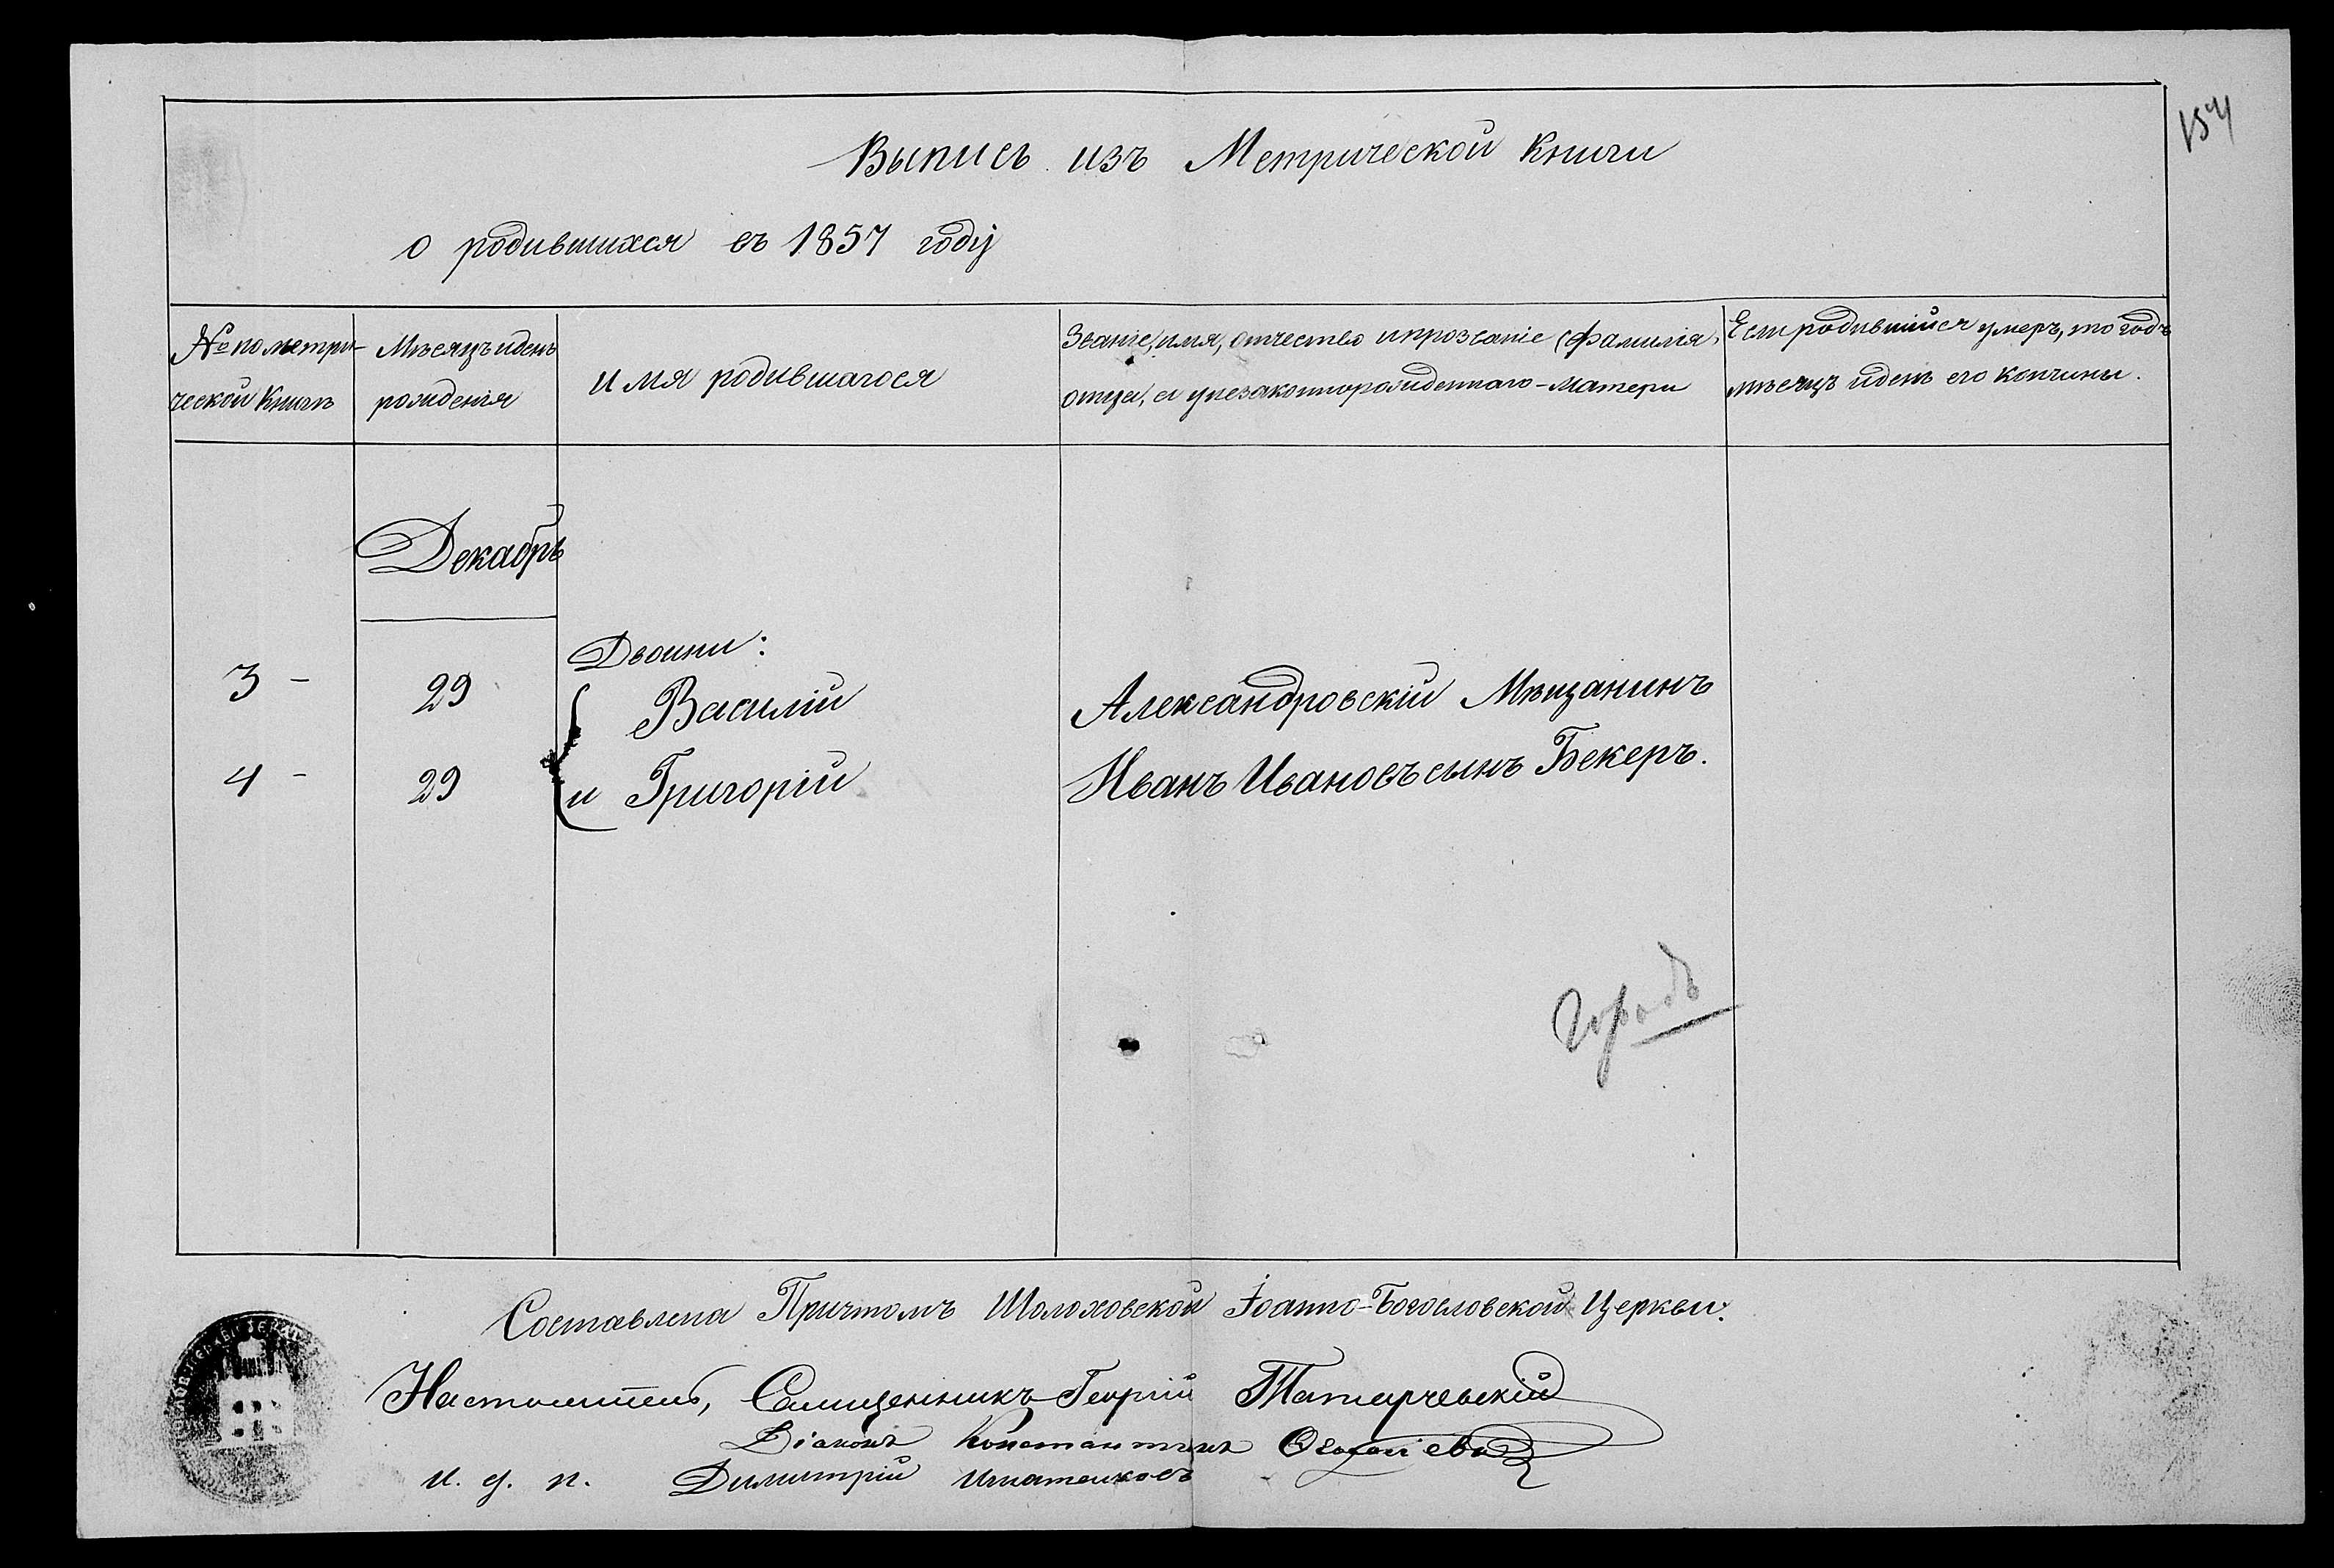 154
Выпись изъ Метрической Книги
о родившихся въ 1857 году
№ по метри-
ческой Книгѣ
Мѣсяцъ и день
рожденія
имя родившагося
Званіе, имя, отчество и прозваніе (фамилія)
отца, а у незаконнорожденнаго - матери
Если родившійся умеръ, то годъ
мѣсяцъ и день его кончины.
Декабрь
Двоини:
3 - 29 Василій Александровскій Мѣщанинъ
4 - 29 и Григорій Иванъ Ивановъ сынъ Бекеръ.
городъ
Составлена Причтомъ Шолоховской Іоанно-Богословской Церкви.
Настоятель, Священникъ Георгій Татарчевскій
Діаконъ Константинъ
и. д. п. Димитрій Игнатенковъ